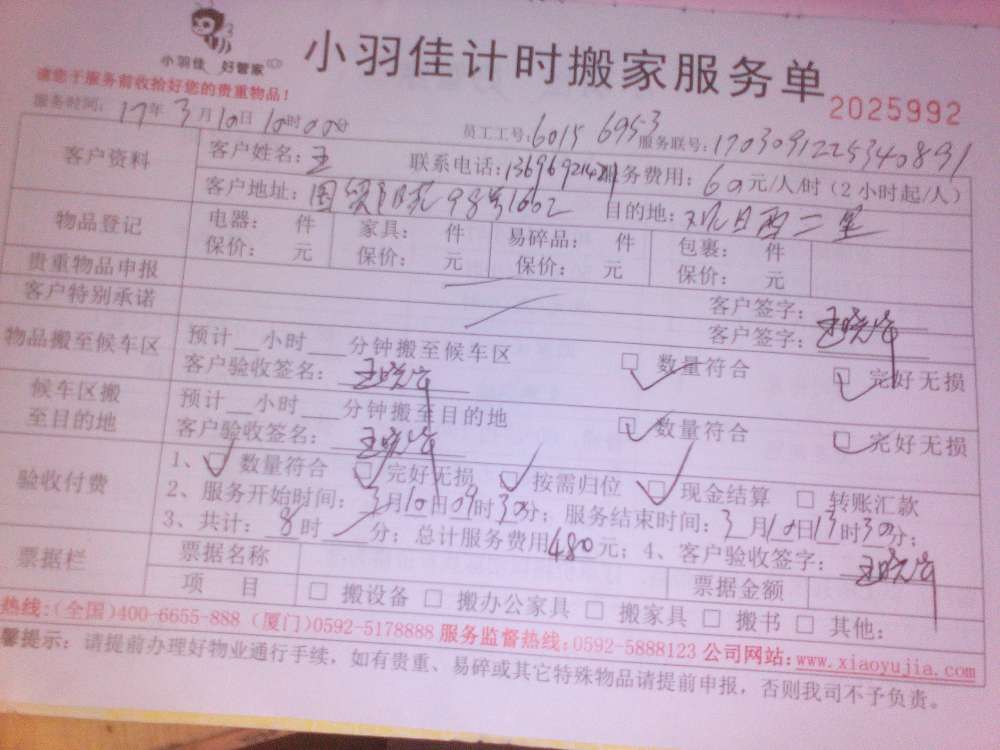 小羽佳 好管家
小羽佳计时搬家服务单
2025992
请您于服务前收拾好您的贵重物品！
服务时间：17年3月10日10时00分 员工工号：6015 6953 服务联号：1703091225340891
客户资料
客户姓名：王 联系电话： 服务费用：60元/人/时（2小时起/人）
客户地址：国贸 98号1602 目的地：观日西二里
物品登记
电器： 件 家具： 件 易碎品： 件 包裹： 件
保价： 元 保价： 元 保价： 元 保价： 元
贵重物品申报 客户签字：
客户特别承诺 客户签字：
物品搬至候车区
预计__小时___分钟搬至候车区 □ 数量符合 □ 完好无损
客户验收签名：
候车区搬至目的地
预计__小时___分钟搬至目的地 □ 数量符合 □ 完好无损
客户验收签名：
验收付费
1、□ 数量符合 □ 完好无损 □ 按需归位 □ 现金结算 □ 转账汇款
2、服务开始时间：3月10日09时30分；服务结束时间：3月10日13时30分；
3、共计：8时 分；总计服务费用480元；4、客户验收签字：
票据栏
票据名称 票据金额
项 目 □ 搬设备 □ 搬办公家具 □ 搬家具 □ 搬书 □ 其他：
热线：(全国)400-6655-888 (厦门)0592-5178888 服务监督热线：0592-5888123 公司网站：www.xiaoyujia.com
馨提示：请提前办理好物业通行手续，如有贵重、易碎或其它特殊物品请提前申报，否则我司不予负责。